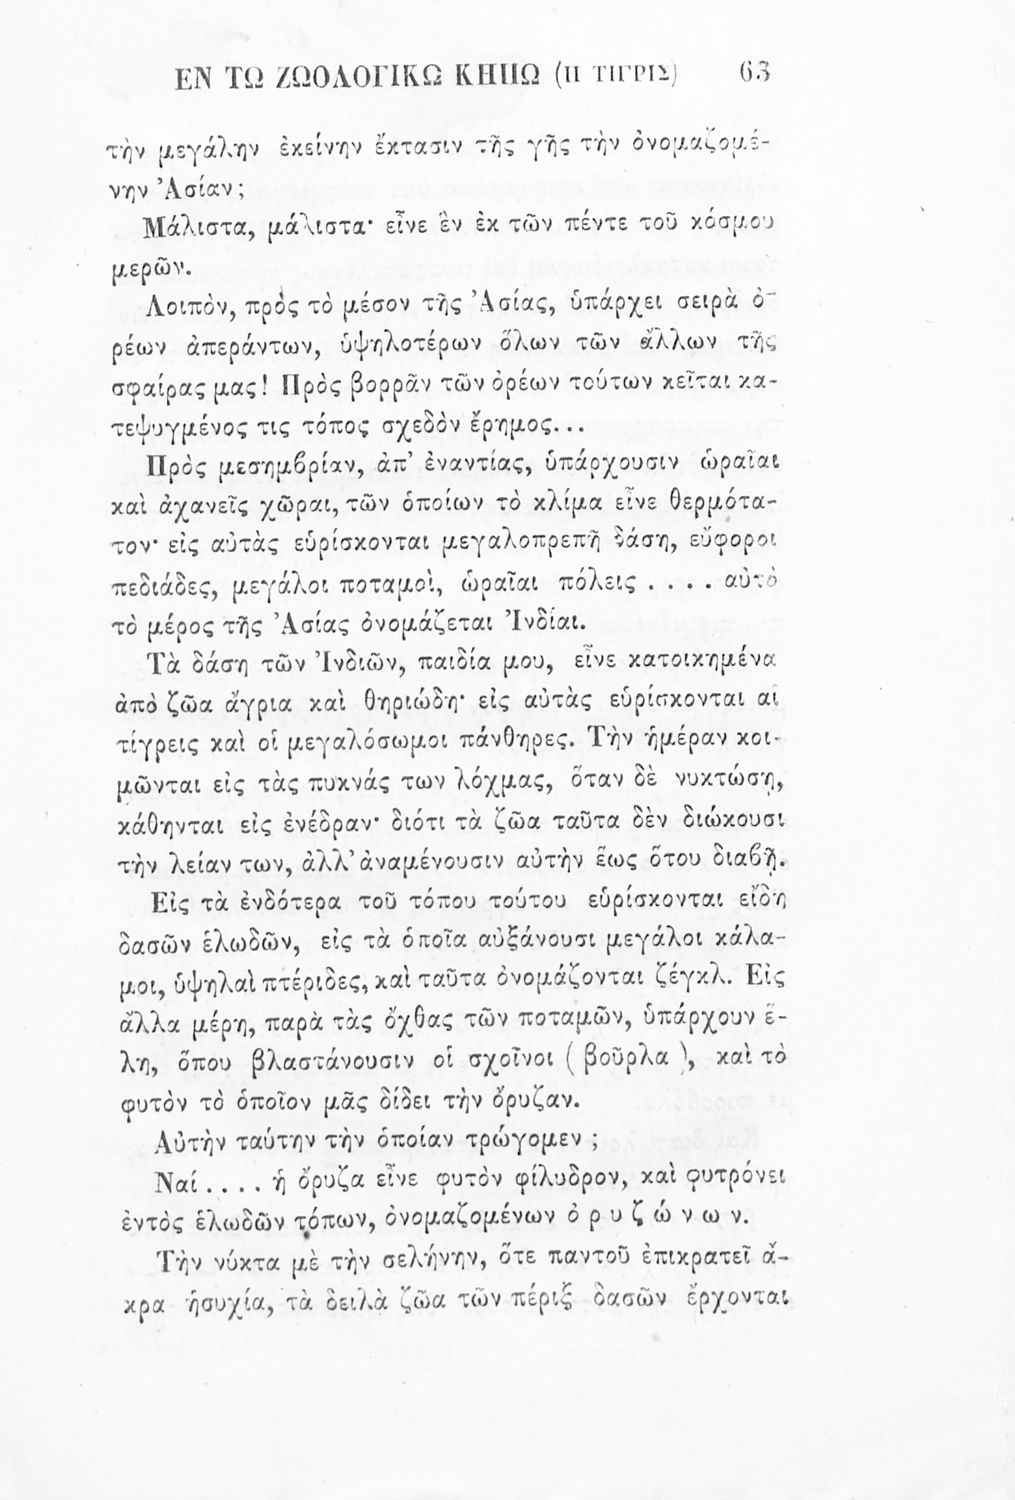 ΕΝ ΤΩ ΖΩΟΛΟΓΙΚΩ ΚΗΠΩ (Η ΤΙΓΡΙΣ) 63
τὴν μεγάλην ἐκείνην ἔκτασιν τῆς γῆς τὴν ὀνομαζομέ-
νην Ἀσίαν;
Μάλιστα, μάλιστα· εἶνε ἓν ἐκ τῶν πέντε τοῦ κόσμου
μερῶν.
Λοιπὸν, πρὸς τὸ μέσον τῆς Ἀσίας, ὑπάρχει σειρὰ ὀ-
ρέων ἀπεράντων, ὑψηλοτέρων ὅλων τῶν ἄλλων τῆς
σφαίρας μας! Πρὸς βορρᾶν τῶν ὀρέων τούτων κεῖται κα-
τεψυγμένος τις τόπος σχεδὸν ἔρημος...
Πρὸς μεσημβρίαν, ἀπ’ ἐναντίας, ὑπάρχουσιν ὡραῖαι
καὶ ἀχανεῖς χῶραι, τῶν ὁποίων τὸ κλίμα εἶνε θερμότα-
τον· εἰς αὐτὰς εὑρίσκονται μεγαλοπρεπῆ δάση, εὔφοροι
πεδιάδες, μεγάλοι ποταμοὶ, ὡραῖαι πόλεις .... αὐτὸ
τὸ μέρος τῆς Ἀσίας ὀνομάζεται Ἰνδίαι.
Τὰ δάση τῶν Ἰνδιῶν, παιδία μου, εἶνε κατοικημένα
ἀπὸ ζῶα ἄγρια καὶ θηριώδη· εἰς αὐτὰς εὑρίσκονται αἱ
τίγρεις καὶ οἱ μεγαλόσωμοι πάνθηρες. Τὴν ἡμέραν κοι-
μῶνται εἰς τὰς πυκνάς των λόχμας, ὅταν δὲ νυκτώσῃ,
κάθηνται εἰς ἐνέδραν· διότι τὰ ζῶα ταῦτα δὲν διώκουσι
τὴν λείαν των, ἀλλ’ ἀναμένουσιν αὐτὴν ἕως ὅτου διαβῇ.
Εἰς τὰ ἐνδότερα τοῦ τόπου τούτου εὑρίσκονται εἴδη
δασῶν ἑλωδῶν, εἰς τὰ ὁποῖα αὐξάνουσι μεγάλοι κάλα-
μοι, ὑψηλαὶ πτέριδες, καὶ ταῦτα ὀνομάζονται ζέγκλ. Εἰς
ἄλλα μέρη, παρὰ τὰς ὄχθας τῶν ποταμῶν, ὑπάρχουν ἕ-
λη, ὅπου βλαστάνουσιν οἱ σχοῖνοι ( βοῦρλα ), καὶ τὸ
φυτὸν τὸ ὁποῖον μᾶς δίδει τὴν ὄρυζαν.
Αὐτὴν ταύτην τὴν ὁποίαν τρώγομεν ;
Ναί .... ἡ ὄρυζα εἶνε φυτὸν φίλυδρον, καὶ φυτρόνει
ἐντὸς ἑλωδῶν τόπων, ὀνομαζομένων ὀ ρ υ ζ ώ ν ω ν.
Τὴν νύκτα μὲ τὴν σελήνην, ὅτε παντοῦ ἐπικρατεῖ ἄ-
κρα ἡσυχία, τὰ δειλὰ ζῶα τῶν πέριξ δασῶν ἔρχονται